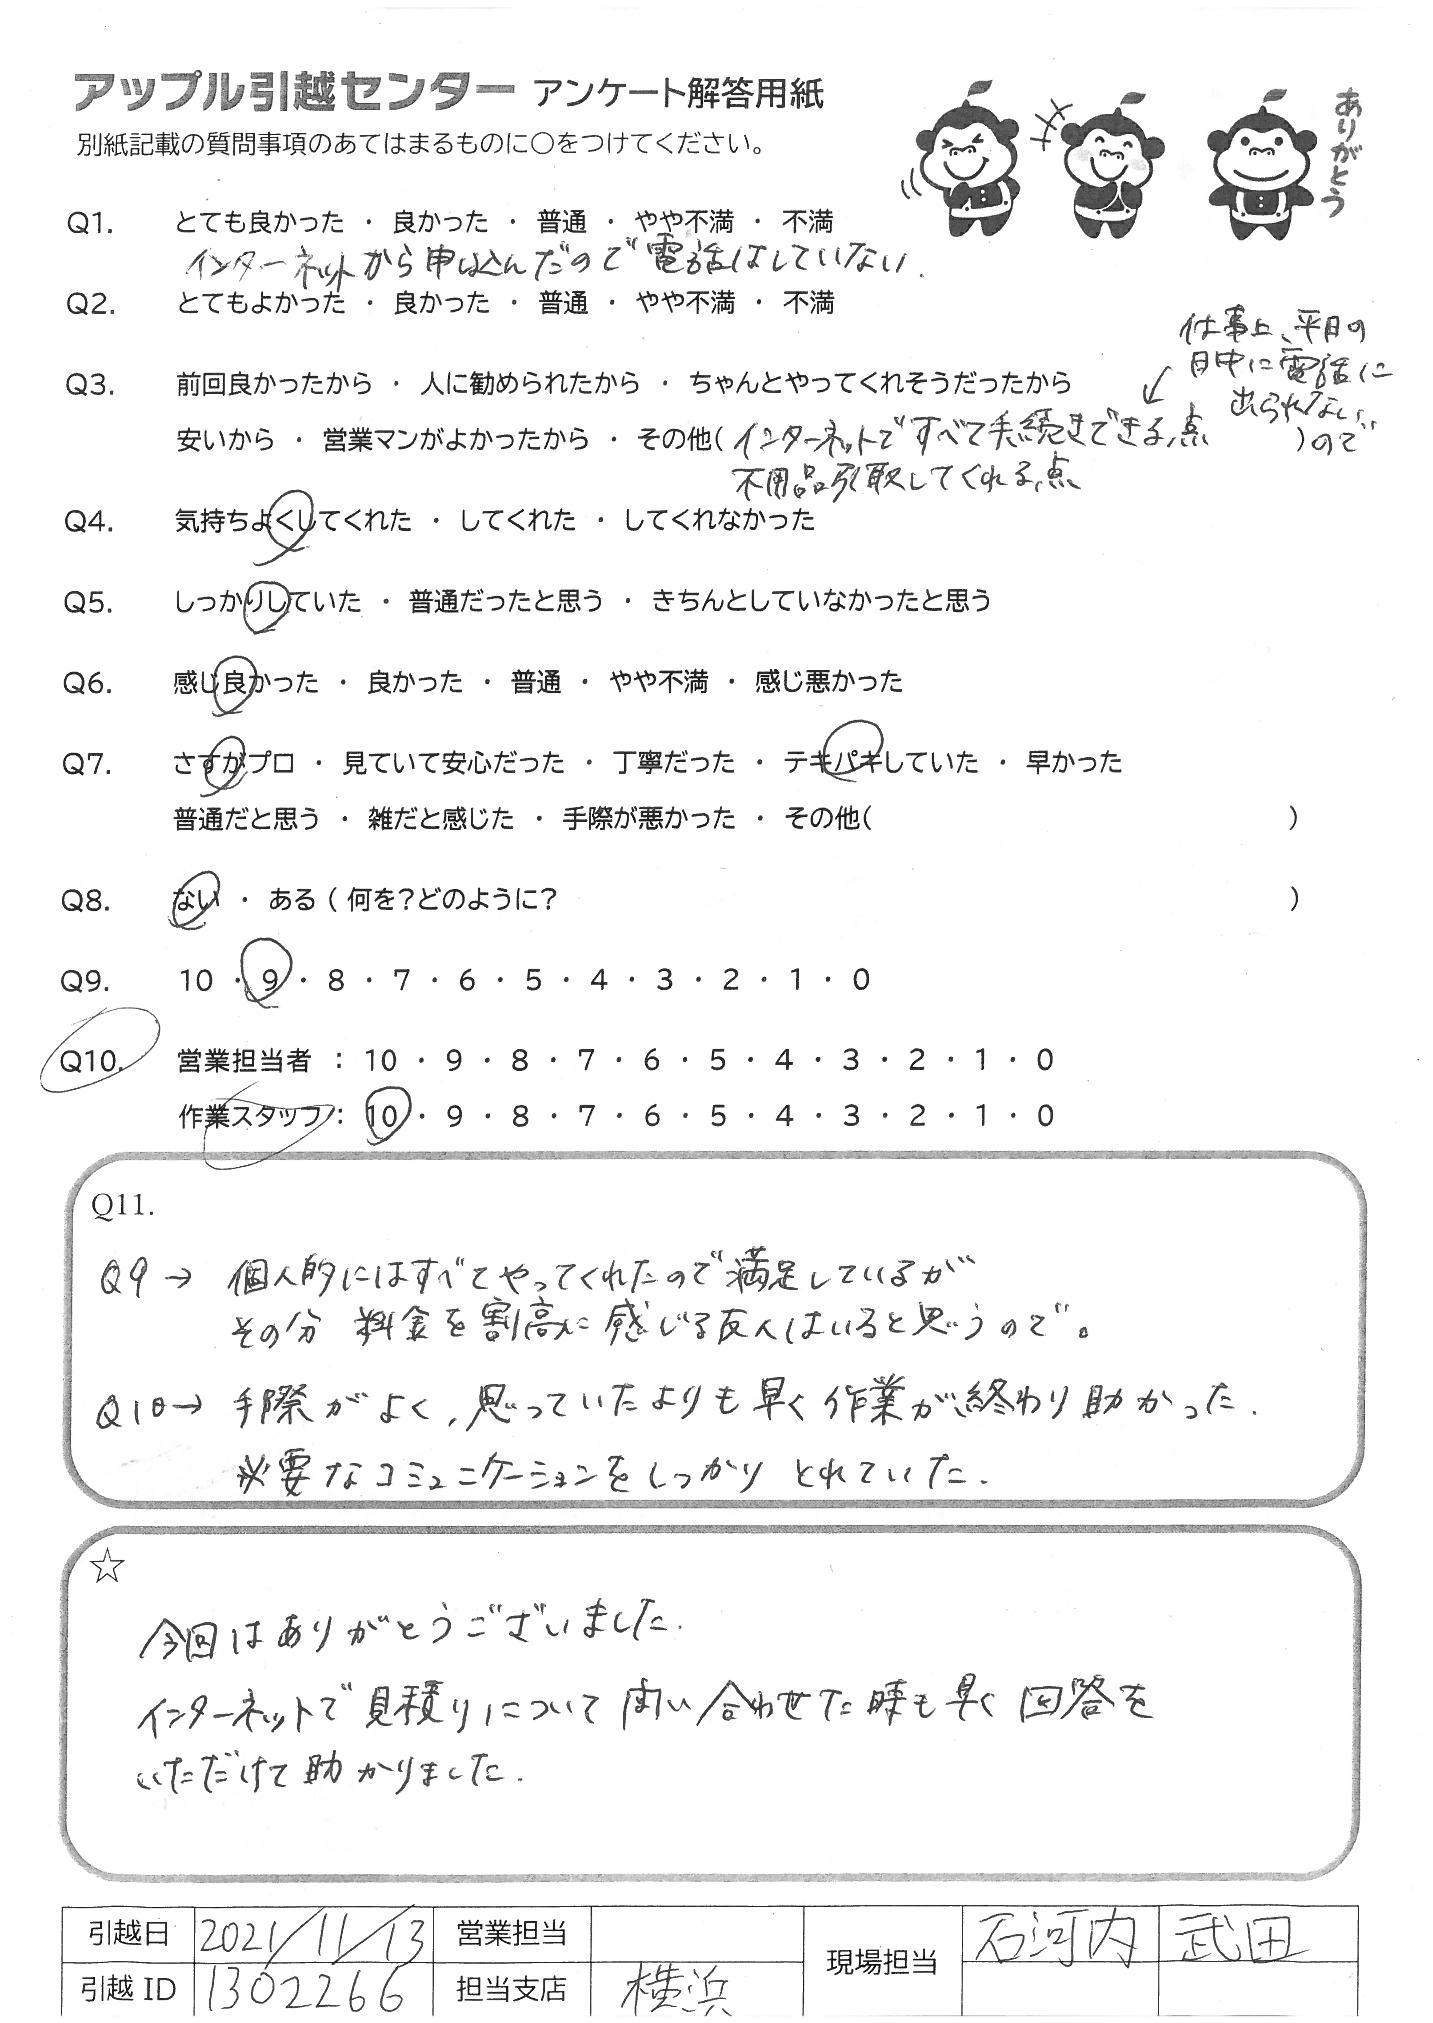 アップル引越センター アンケート解答用紙
別紙記載の質問事項のあてはまるものに○をつけてください。
ありがとう
Q1. とても良かった ・ 良かった ・ 普通 ・ やや不満 ・ 不満
インターネットから申し込んだので電話はしていない.
Q2. とてもよかった ・ 良かった ・ 普通 ・ やや不満 ・ 不満
仕事上、平日の
日中に電話に
出られない
ので
Q3. 前回良かったから ・ 人に勧められたから ・ ちゃんとやってくれそうだったから
安いから ・ 営業マンがよかったから ・ その他( インターネットですべて手続きできる点 )
不用品引取してくれる点
Q4. 気持ちよくしてくれた ・ してくれた ・ してくれなかった
Q5. しっかりしていた ・ 普通だったと思う ・ きちんとしていなかったと思う
Q6. 感じ良かった ・ 良かった ・ 普通 ・ やや不満 ・ 感じ悪かった
Q7. さすがプロ ・ 見ていて安心だった ・ 丁寧だった ・ テキパキしていた ・ 早かった
普通だと思う ・ 雑だと感じた ・ 手際が悪かった ・ その他( )
Q8. ない ・ ある ( 何を?どのように? )
Q9. 10 ・ 9 ・ 8 ・ 7 ・ 6 ・ 5 ・ 4 ・ 3 ・ 2 ・ 1 ・ 0
Q10. 営業担当者 : 10 ・ 9 ・ 8 ・ 7 ・ 6 ・ 5 ・ 4 ・ 3 ・ 2 ・ 1 ・ 0
作業スタッフ : 10 ・ 9 ・ 8 ・ 7 ・ 6 ・ 5 ・ 4 ・ 3 ・ 2 ・ 1 ・ 0
Q11.
Q9→ 個人的にはすべてやってくれたので満足しているが
その分 料金を割高に感じる友人はいると思うので。
Q10→ 手際がよく, 思っていたよりも早く作業が終わり助かった.
必要なコミュニケーションをしっかりとれていた.
☆
今回はありがとうございました.
インターネットで見積りについて問い合わせた時も早く回答を
いただけて助かりました.
引越日 2021/11/13 営業担当 現場担当 石河内 武田
引越 ID 1302266 担当支店 横浜